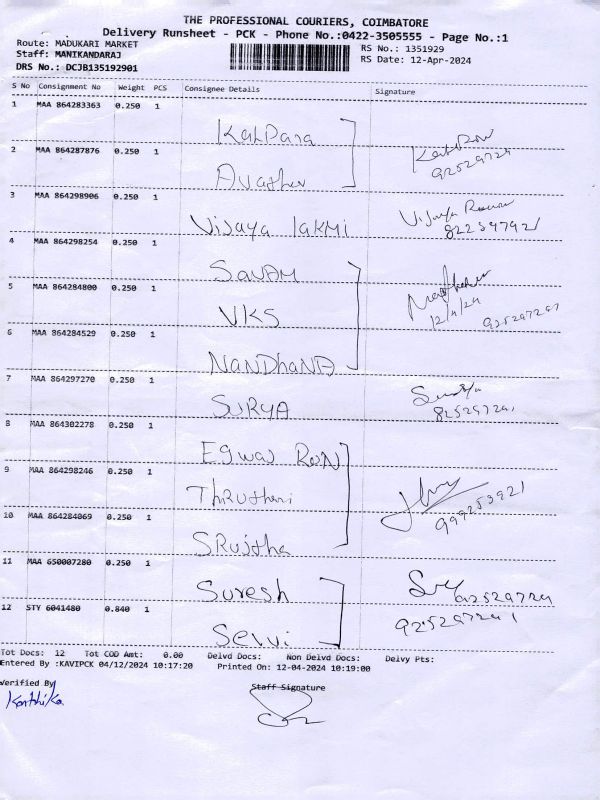 THE PROFESSIONAL COURIERS, COIMBATORE
Delivery Runsheet - PCK - Phone No.:0422-3505555 - Page No.:1
Route: MADUKARI MARKET
Staff: MANIKANDARAJ
DRS No.: DCJB135192901
RS No.: 1351929
RS Date: 12-Apr-2024
S No Consignment No Weight PCS Consignee Details Signature
1 MAA 864283363 0.250 1 Kalpana
2 MAA 864287876 0.250 1
3 MAA 864298906 0.250 1 Vijaya lakmi Vijaya
4 MAA 864298254 0.250 1
5 MAA 864284800 0.250 1 VKS
12/4/24
6 MAA 864284529 0.250 1 NANDhaNA
7 MAA 864297270 0.250 1 SURYA Surya
8 MAA 864302278 0.250 1
9 MAA 864298246 0.250 1
10 MAA 864284069 0.250 1 SRujtha
11 MAA 650007280 0.250 1 Suresh
12 STY 6041480 0.840 1 Selvi
Tot Docs: 12 Tot COD Amt: 0.00 Delvd Docs: Non Delvd Docs: Delvy Pts:
Entered By :KAVIPCK 04/12/2024 10:17:20 Printed On: 12-04-2024 10:19:00
Verified By Staff Signature
Karthika